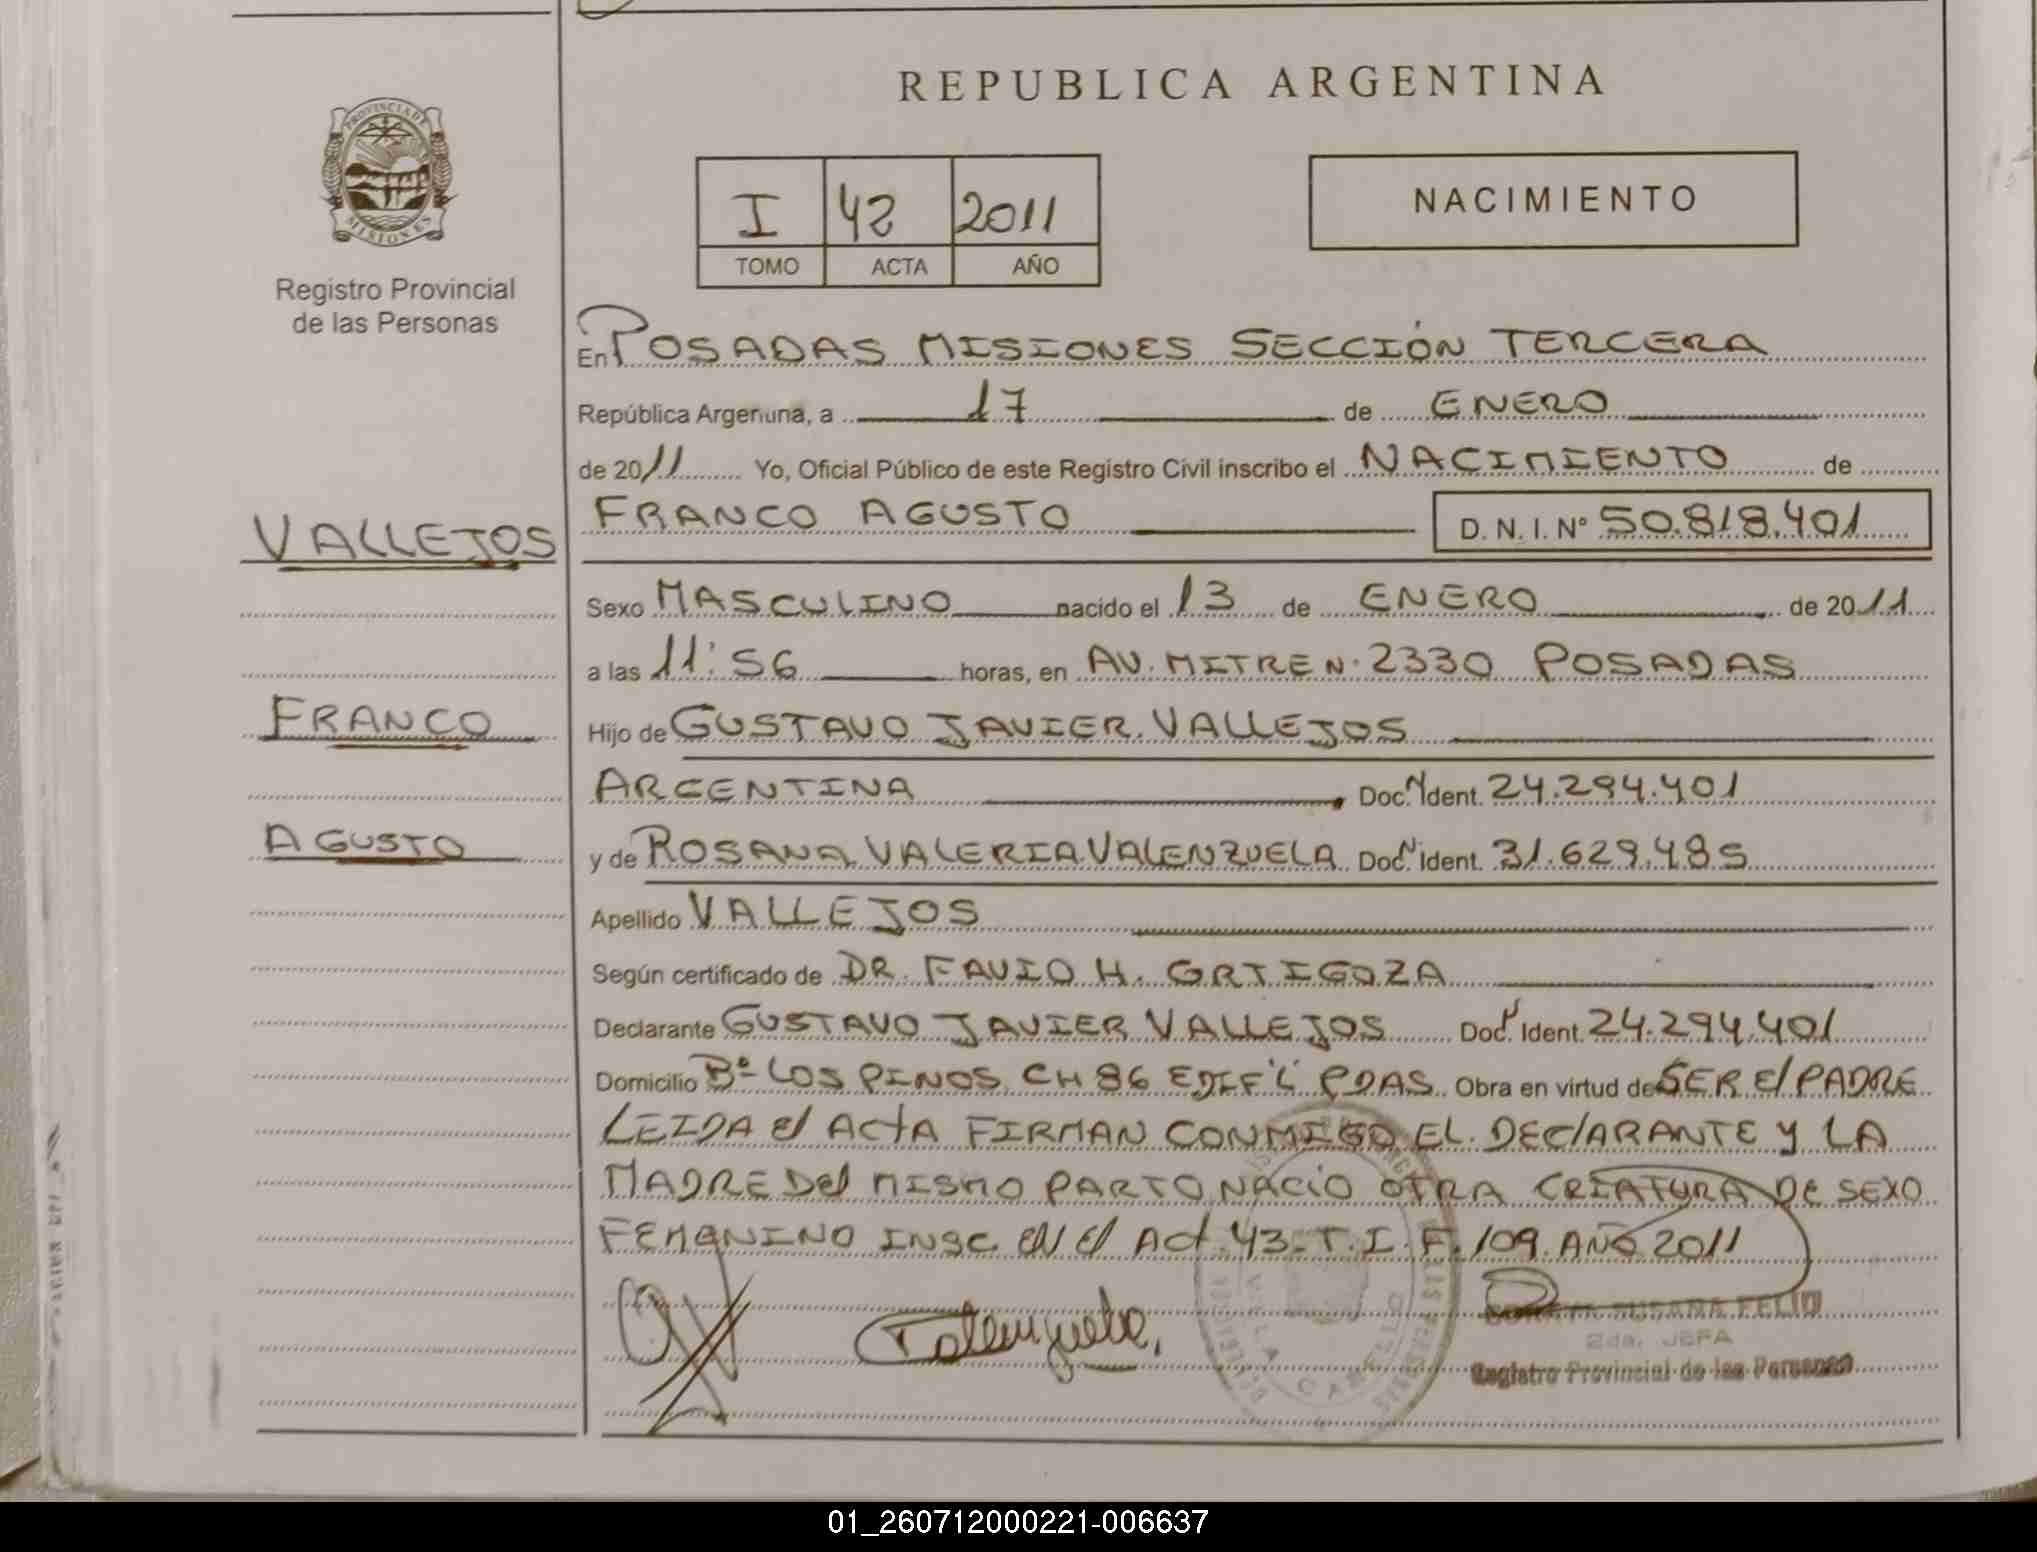 REPUBLICA ARGENTINA
PROVINCIA DE
MISIONES
Registro Provincial
de las Personas
I 42 2011
TOMO ACTA AÑO
NACIMIENTO
En POSADAS MISIONES SECCIÓN TERCERA
República Argentina, a 17 de ENERO
de 2011 Yo, Oficial Público de este Registro Civil inscribo el NACIMIENTO de
FRANCO AGUSTO D. N. I. N° 50.818.401
VALLEJOS
Sexo MASCULINO nacido el 13 de ENERO de 2011
a las 11:56 horas, en AV. MITRE N. 2330 POSADAS
FRANCO
Hijo de GUSTAVO JAVIER VALLEJOS
ARGENTINA Doc. Ident. 24.294.401
AGUSTO
y de ROSANA VALERIA VALENZUELA Doc. Ident. 31.629.485
Apellido VALLEJOS
Según certificado de DR. FAVIO H. ORTIGOZA
Declarante GUSTAVO JAVIER VALLEJOS Doc. Ident. 24.294.401
Domicilio Bº LOS PINOS CH 86 EDIF "L" PDAS. Obra en virtud de SER El PADRE
LEIDA el ACTA FIRMAN CONMIGO EL DEClARANTE Y LA
MADRE Del MISMO PARTO NACIO OTRA CRIATURA DE SEXO
FEMENINO INSC EN El Act. 43 - T. I F. 109. AÑO 2011
Valenzuela
SUSANA FELIU
2da. JEFA
Registro Provincial de las Personas
01_260712000221-006637